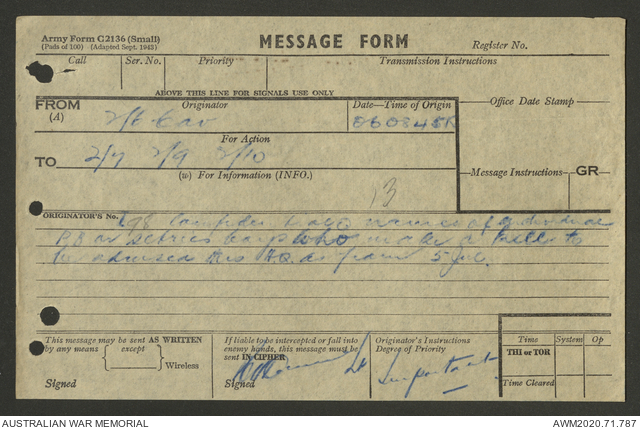 Army Form C2136 (Small)
(Pads of 100) (Adapted Sept. 1943)
MESSAGE FORM
Register No.
Call Ser. No. Priority Transmission Instructions
ABOVE THIS LINE FOR SIGNALS USE ONLY
FROM
(A)
Originator
Date—Time of Origin
Office Date Stamp
2/6 Cav
060845K
For Action
TO
2/7 2/9 2/10
(w) For Information (INFO.)
Message Instructions GR
13
ORIGINATOR'S No. names of
who make a kill to
be advised this HQ as from 5 Jul.
This message may be sent AS WRITTEN
by any means except
Wireless
Signed
If liable to be intercepted or fall into
enemy hands, this message must be
sent IN CIPHER
Signed
Lt
Originator's Instructions
Degree of Priority
Important
Time System Op
THI or TOR
Time Cleared
AUSTRALIAN WAR MEMORIAL
AWM2020.71.787